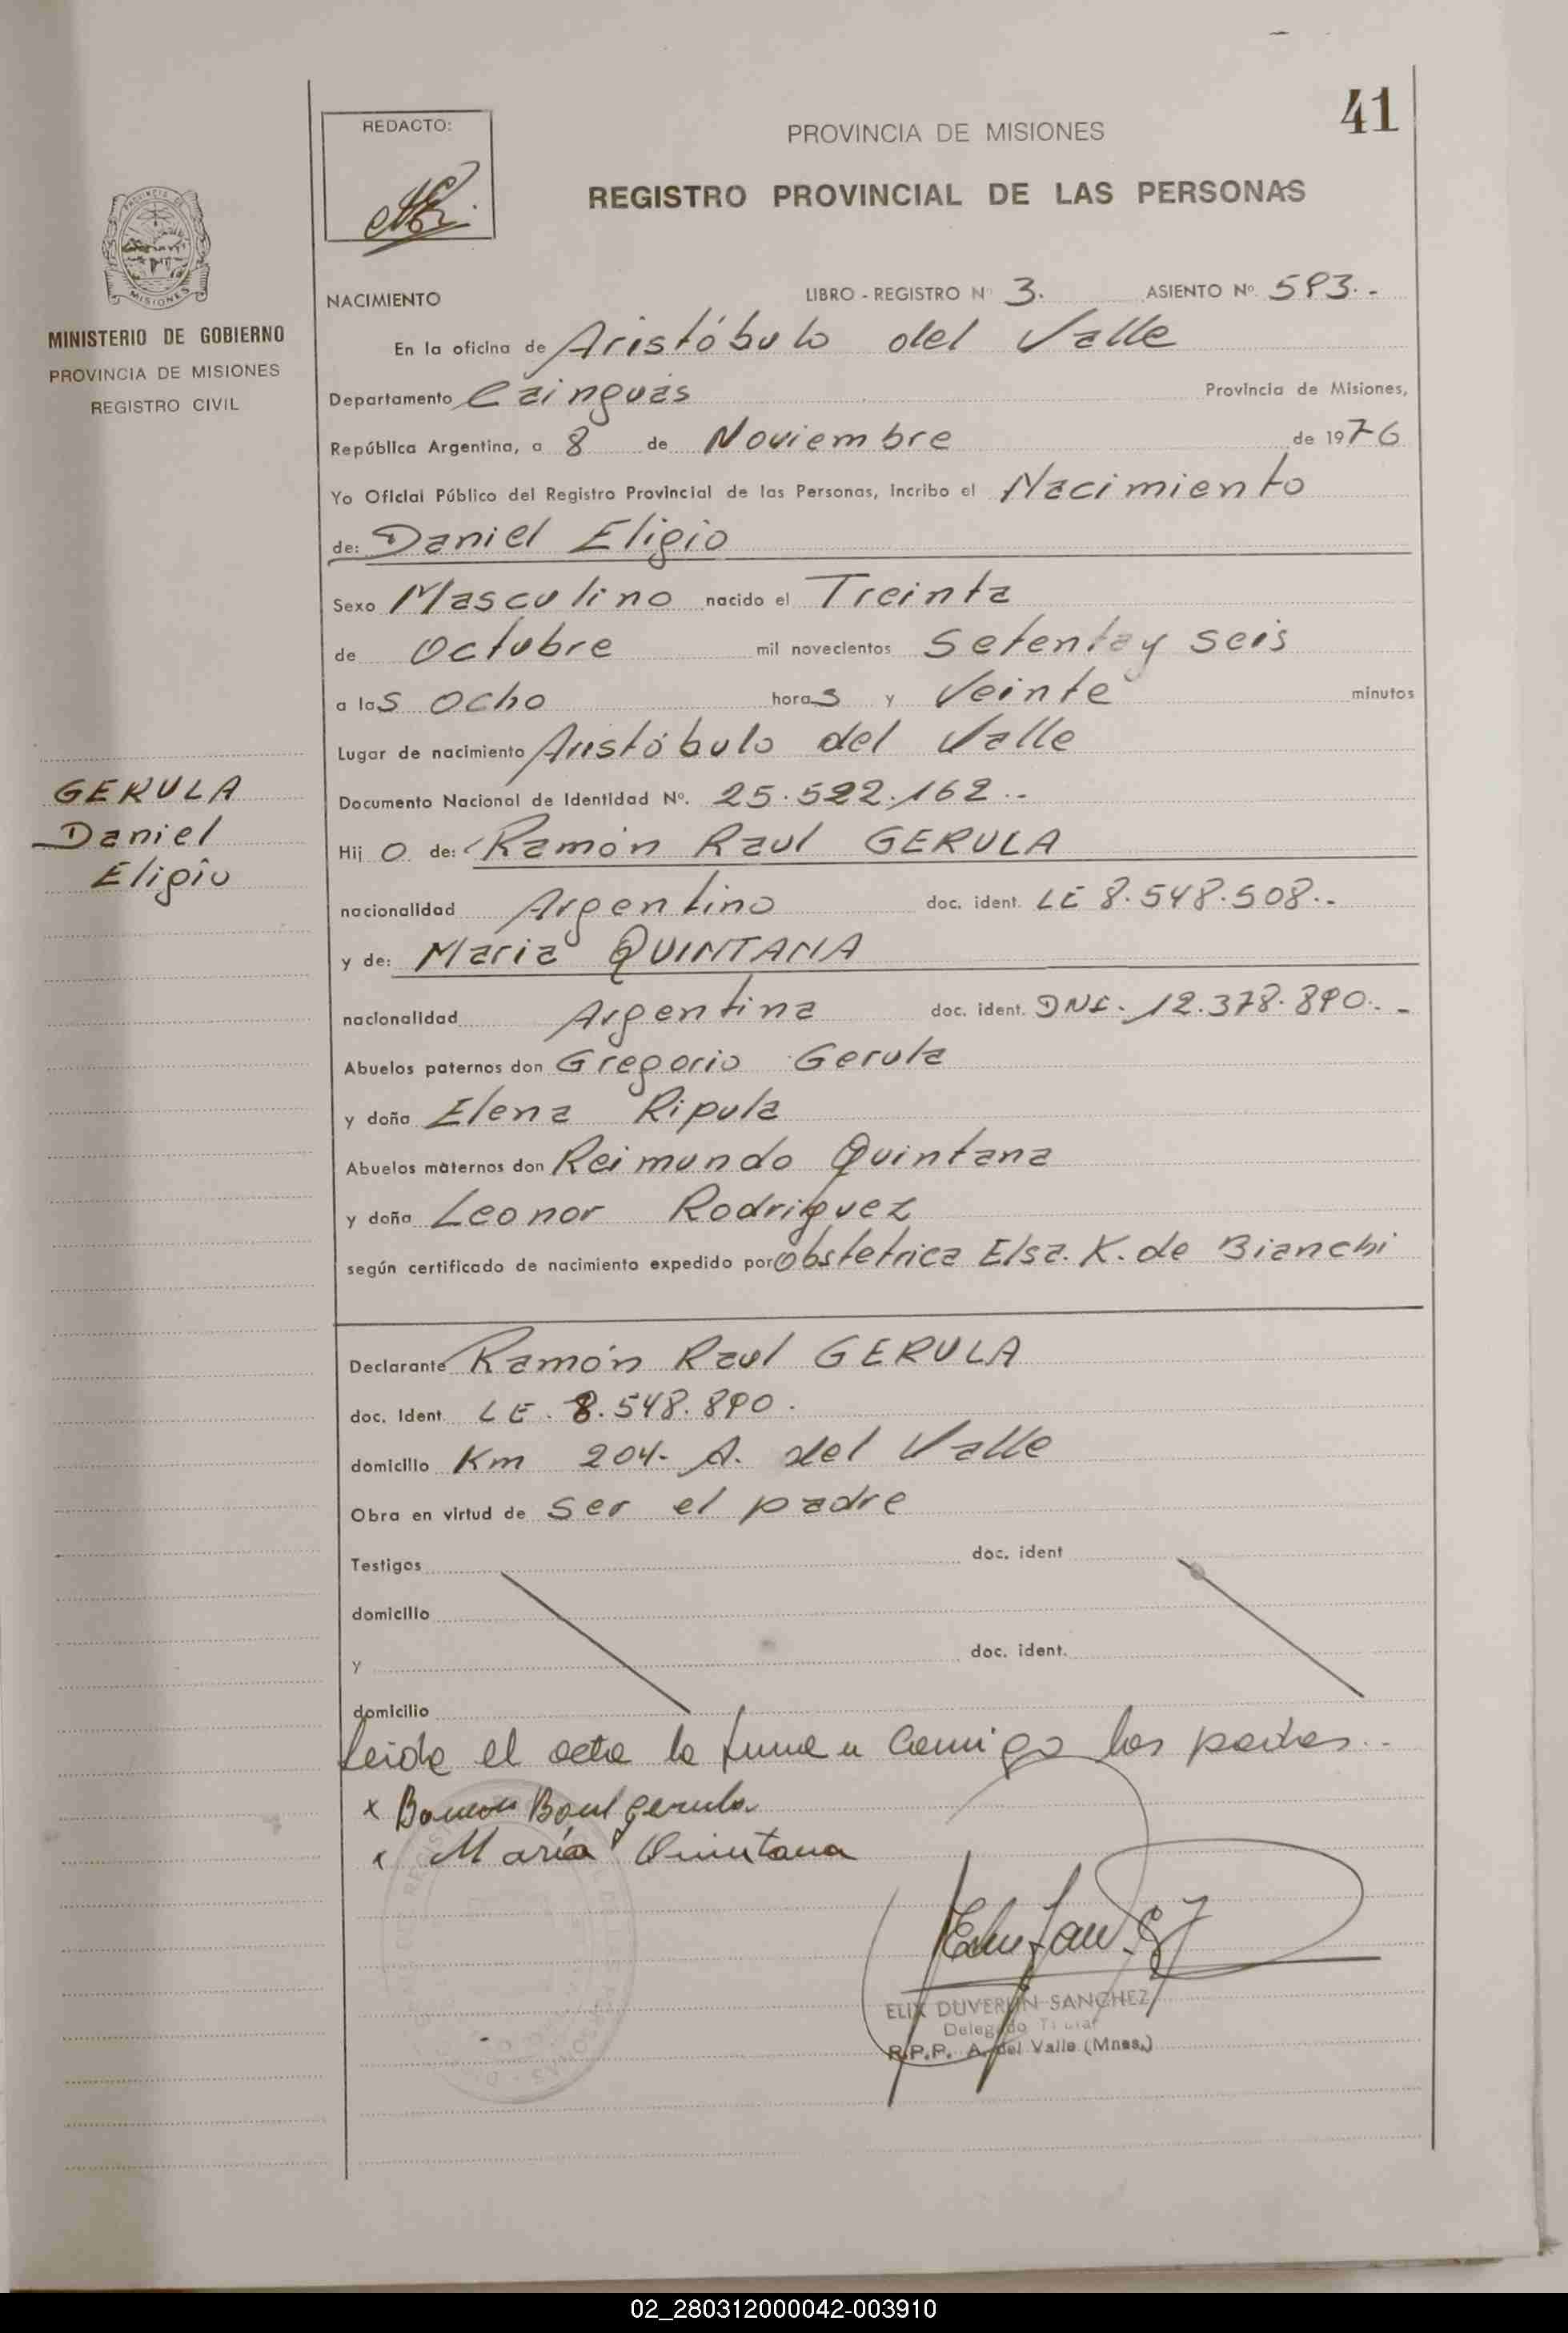 41
REDACTO:
PROVINCIA DE MISIONES
REGISTRO PROVINCIAL DE LAS PERSONAS
MISIONES
MINISTERIO DE GOBIERNO
PROVINCIA DE MISIONES
REGISTRO CIVIL
NACIMIENTO LIBRO - REGISTRO Nº 3. ASIENTO Nº. 593.-
En la oficina de Aristóbulo del Valle
Departamento Cainguás Provincia de Misiones,
República Argentina, a 8 de Noviembre de 1976
Yo Oficial Público del Registro Provincial de las Personas, incribo el Nacimiento
de: Daniel Eligio
Sexo Masculino nacido el Treinta
de Octubre mil novecientos Setenta y seis
a las ocho horas y Veinte minutos
Lugar de nacimiento Aristóbulo del Valle
GERULA
Daniel
Eligio
Documento Nacional de Identidad Nº. 25.522.162.-
Hijo de: Ramón Raul GERULA
nacionalidad Argentino doc. ident. LE 8.548.508.-
y de: Maria QUINTANA
nacionalidad Argentina doc. ident. DNI. 12.378.890.-
Abuelos paternos don Gregorio Gerula
y doña Elena Ripula
Abuelos maternos don Reimundo Quintana
y doña Leonor Rodriguez
según certificado de nacimiento expedido por Obstetrica Elsa. K. de Bianchi
Declarante Ramón Raul GERULA
doc. Ident. LE. 8.548.890.
domicilio Km 204- A. del Valle
Obra en virtud de ser el padre
Testigos doc. ident
domicilio
y doc. ident.
domicilio
Leida el acta la firman conmigo los padres.-
x Ramon Raul Gerula
x María Quintana
ELIX DUVERLIN SANCHEZ
Delegado Titular
R.P.P. A. del Valle (Mnes.)
02_280312000042-003910